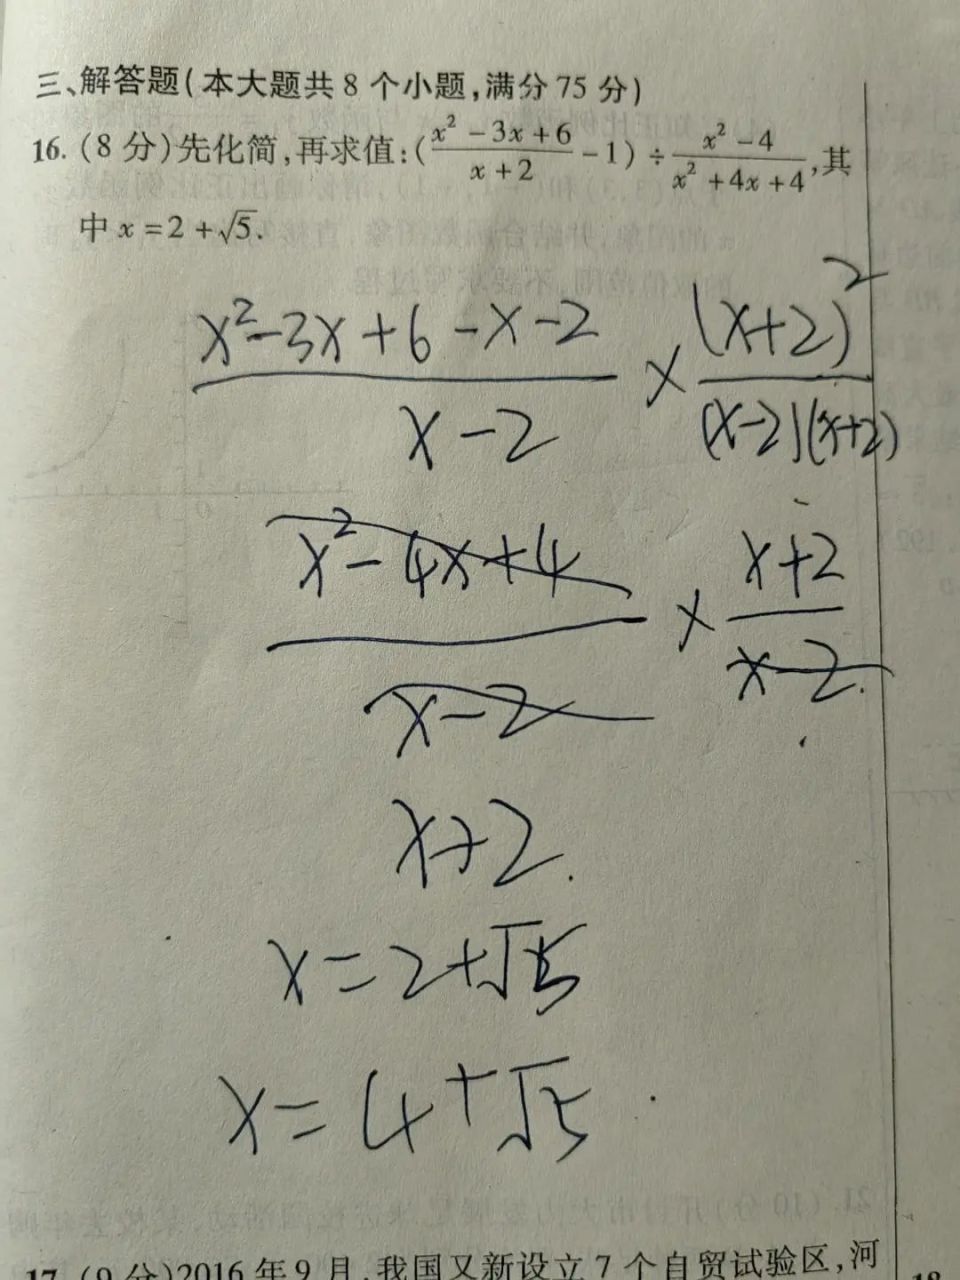 三、解答题(本大题共8个小题,满分75分)
16. (8分)先化简,再求值:(\frac{x^2-3x+6}{x+2}-1)÷\frac{x^2-4}{x^2+4x+4},其
中x=2+√5.
\frac{x^2-3x+6-x-2}{x-2}×\frac{(x+2)^2}{(x-2)(x+2)}
\frac{x^2-4x+4}{x-2}×\frac{x+2}{x-2}
x+2.
x=2+√5
x=4+√5
17. (9分)2016年9月,我国又新设立7个自贸试验区,河